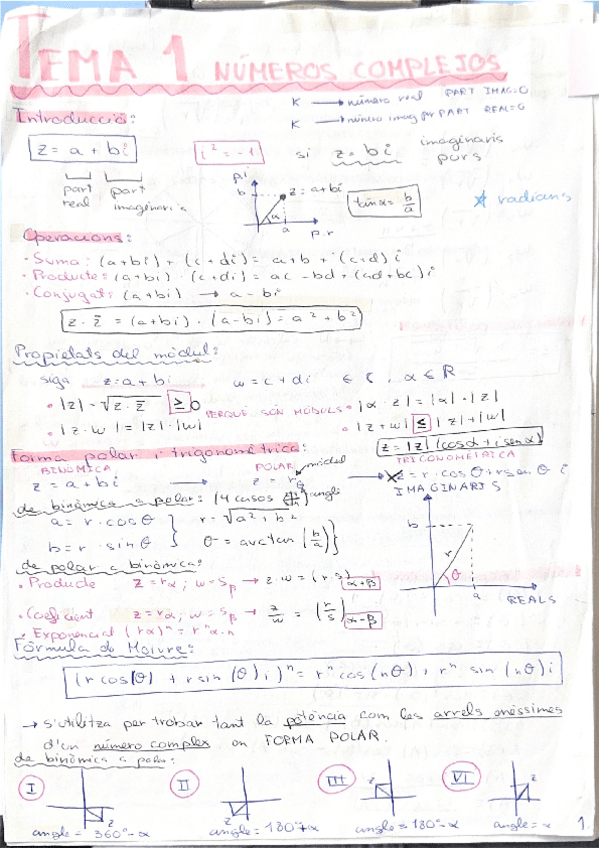 TEMA 1 NÚMEROS COMPLEJOS
Introducció:
K → número real PART IMAG=0
K → número imag pur PART REAL=0
z = a + bi
i² = -1
si z = bi imaginaris purs
part real
part imaginaria
p.i
b
z = a+bi
α
a
p.r
tan α = b/a
☆ radians
Operacions:
· Suma: (a+bi) + (c+di) = a+b + (c+d)i
· Producte: (a+bi) · (c+di) = ac - bd + (ad+bc)i
· Conjugat: (a+bi) → a - bi
z · z̄ = (a+bi) · (a-bi) = a² + b²
Propietats del mòdul:
siga z = a + bi w = c + di ∈ ℂ, α ∈ ℝ
· |z| = √z·z̄ ≥ 0 PERQUÈ SÓN MÒDULS · |α·z| = |α|·|z|
· |z·w| = |z|·|w| · |z+w| ≤ |z|+|w|
z = |z| (cos α + i sen α)
Forma polar i trigonométrica:
BINÒMICA POLAR mòdul TRIGONOMÈTRICA
z = a + bi → z = r_θ → z = r·cos θ + r sen θ i
angle
de binòmica a polar: (4 casos
IMAGINARIS
a = r · cos θ r = √a² + b²
b = r · sin θ θ = arctan (b/a)
b
r
θ
a
REALS
de polar a binòmica:
· Producte z = r_α ; w = s_β → z·w = (r·s)_α+β
· Coeficient z = r_α ; w = s_β → z/w = (r/s)_α-β
· Exponencial (r_α)ⁿ = rⁿ_α·n
Fórmula de Moivre:
(r cos(θ) + r sin(θ)i)ⁿ = rⁿ cos(nθ) + rⁿ sin(nθ)i
→ s'utilitza per trobar tant la potència com les arrels enèssimes
d'un número complex en FORMA POLAR.
de binòmica a polar:
I II III VI
z z z z
angle = 360° - α angle = 180° + α angle = 180° - α angle = α
1